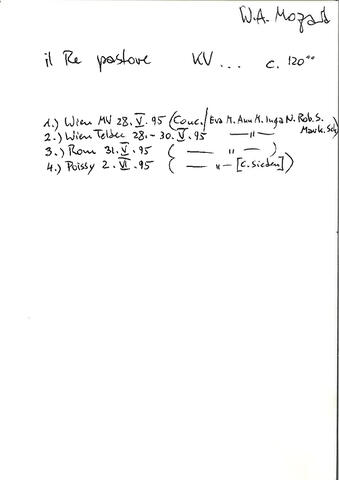 W.A. Mozart
il Re pastore KV ... c. 120°°
1.) Wien MV 28.V.95 (Conc./Eva M. Ann M. Inga N. Rob. S.
Mark. Sch)
2.) Wien Teldec 28.-30.V.95 — " —
3.) Rom 31.V.95 ( — " — )
4.) Poissy 2.VI.95 ( — " — [C. Sieden])